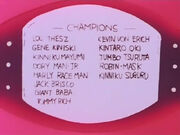 CHAMPIONS
LOU THESZ
GENE KINISKI
KINNIKU MAYUMI
DORY MAN JR
HARLY RACE MAN
JACK BRISCO
GIANT BABA
TOMMY RICH
KEVIN VON ERICH
KINTARO OKI
TUMBO TSURUTA
ROBIN MASK
KINNIKU SUGURU